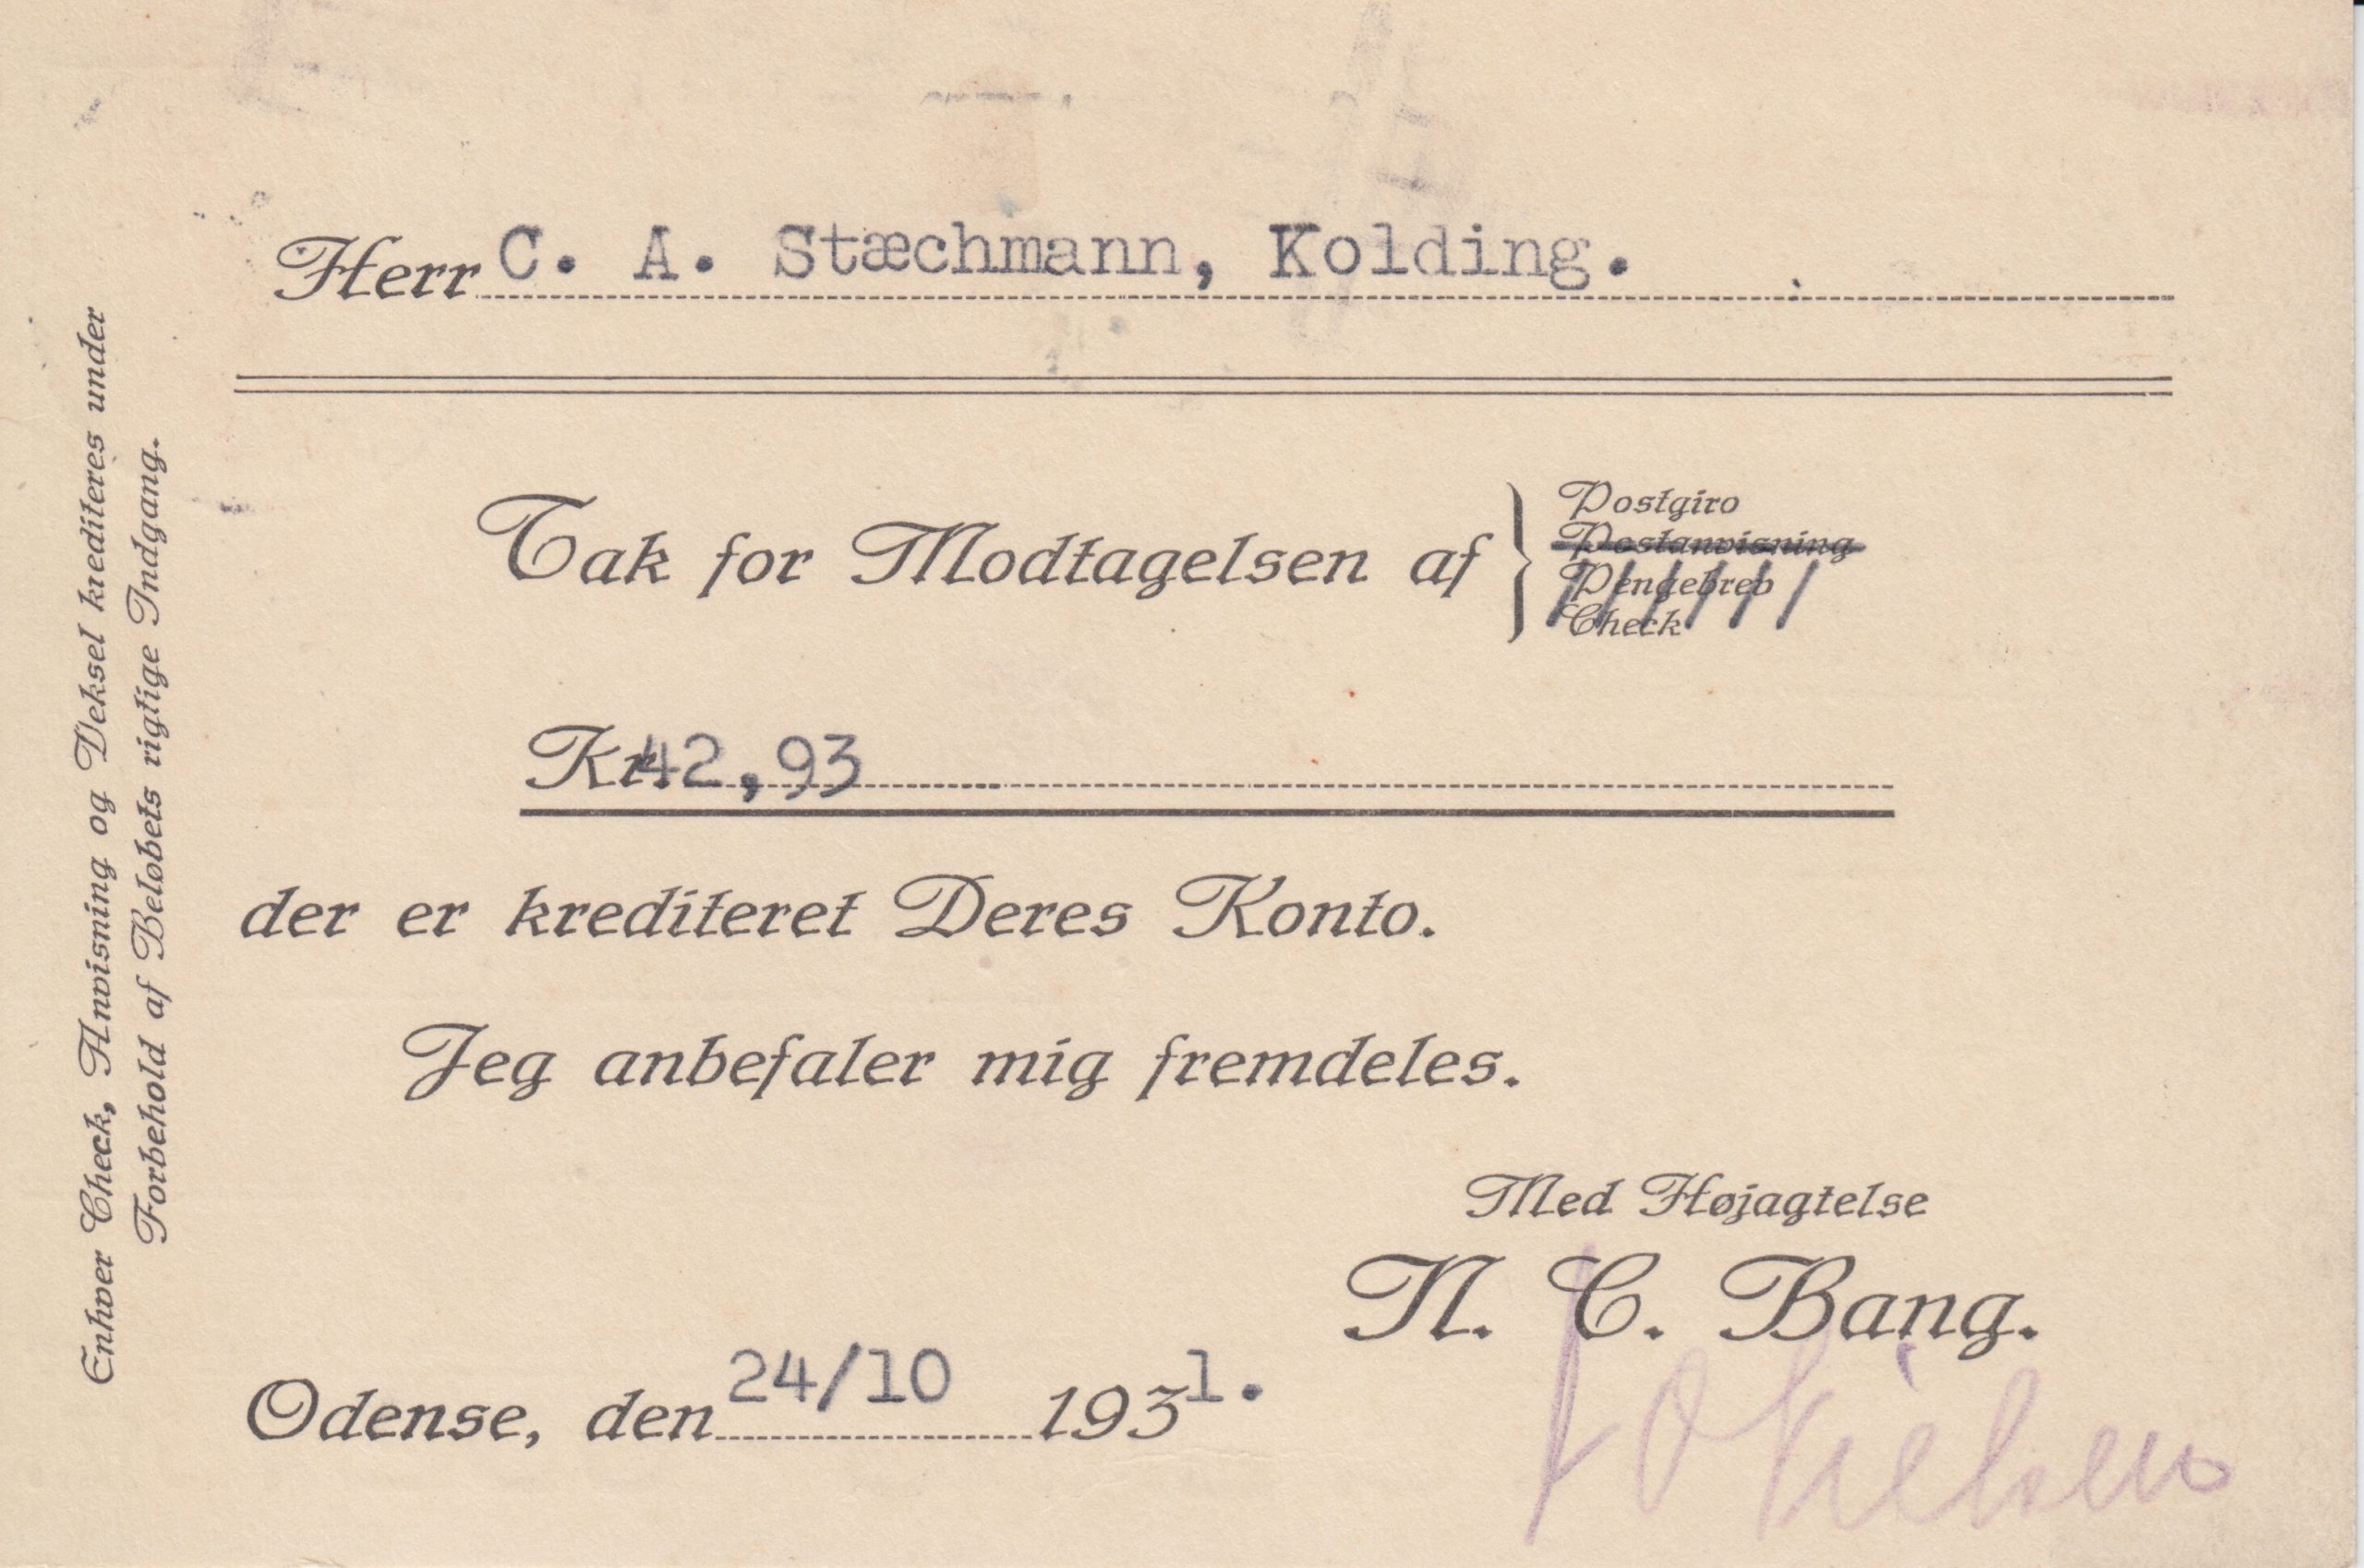 Herr C. A. Stæchmann, Kolding.
Tak for Modtagelsen af
Postgiro
Postanvisning
Pengebrev
Check
Kr. 42,93
der er krediteret Deres Konto.
Jeg anbefaler mig fremdeles.
Med Højagtelse
N. C. Bang.
Odense, den 24/10 1931.
Nielsen
Enhver Check, Anvisning og Veksel krediteres under
Forbehold af Beløbets rigtige Indgang.